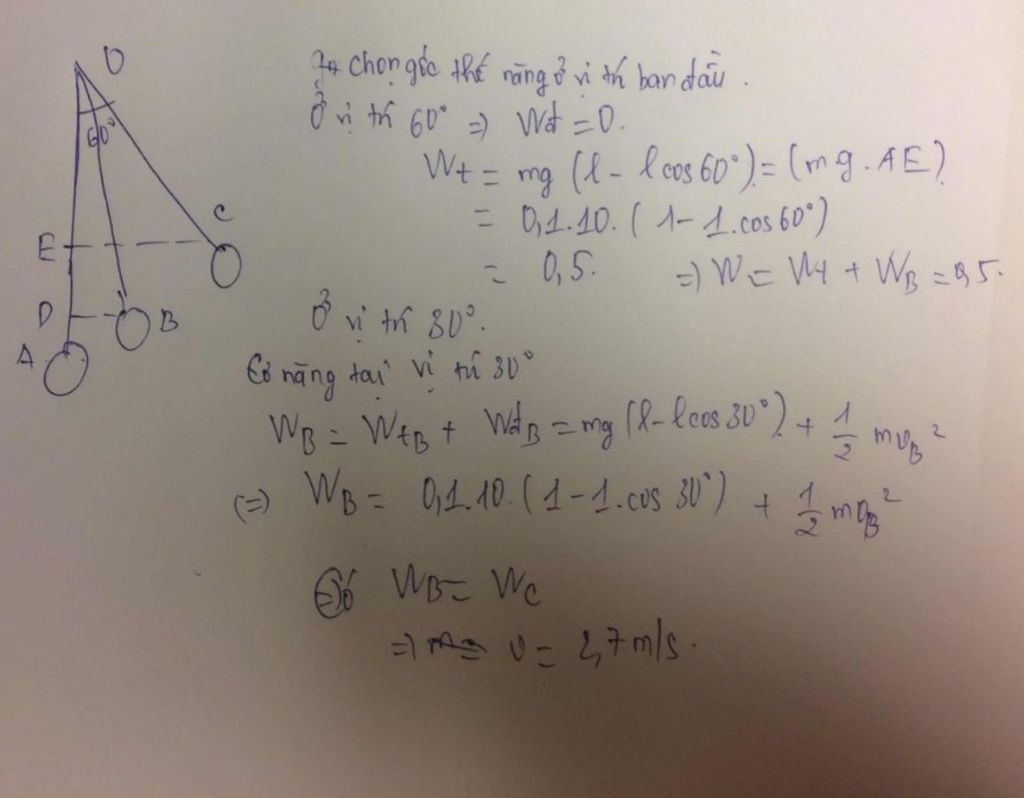 O
60°
C
E
D
B
A
chọn gốc thế năng ở vị trí ban đầu.
Ở vị trí 60° => Wđ = 0.
Wt = mg (l - l cos 60°) = (mg. AE)
= 0,1.10. (1 - 1.cos 60°)
= 0,5. => W = Wt + WB = 0,5.
Ở vị trí 30°.
Cơ năng tại vị trí 30°
WB = WtB + WđB = mg (l - l cos 30°) + 1/2 mvB²
(=) WB = 0,1.10. (1 - 1.cos 30°) + 1/2 mvB²
Có WB = WC
=> v = 2,7 m/s.